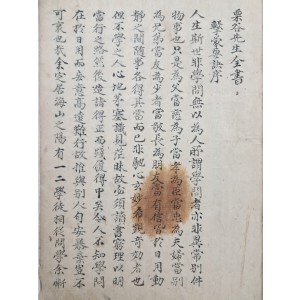 栗谷先生全書
擊蒙要訣序
人生斯世非學問無以爲人所謂學問者亦非異常別件
物事也只是爲父當慈爲子當孝爲臣當忠爲夫婦當別
爲兄弟當友爲少者當敬長爲朋友當有信皆於日用動
靜之間隨事各得其當而已非馳心玄妙希覬奇效者也
但不學之人心地茅塞識見茫昧故必須讀書窮理以明
當行之路然後造詣得正而踐履得中矣今人不知學問
在於日用而妄意高遠難行故推與別人自安暴棄豈不
可哀也哉余定居海山之陽有一二學徒相從問學余慚